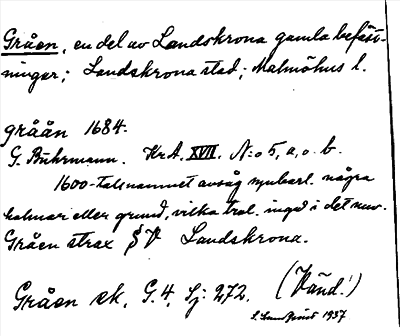 Gråen, en del av Landskrona gamla befäst-
ningar; Landskrona stad; Malmöhus l.
gråån 1684.
G. Buhrmann. Kr.A. XVII. N:o 5, a, o. b.
1600-talsnamnet avsåg synbarl. några
holmar eller grund, vilka trol. ingå i det nuv.
Gråen strax SV Landskrona.
Gråen ek, G. 4, Sj: 272. (Vänd!)
1937